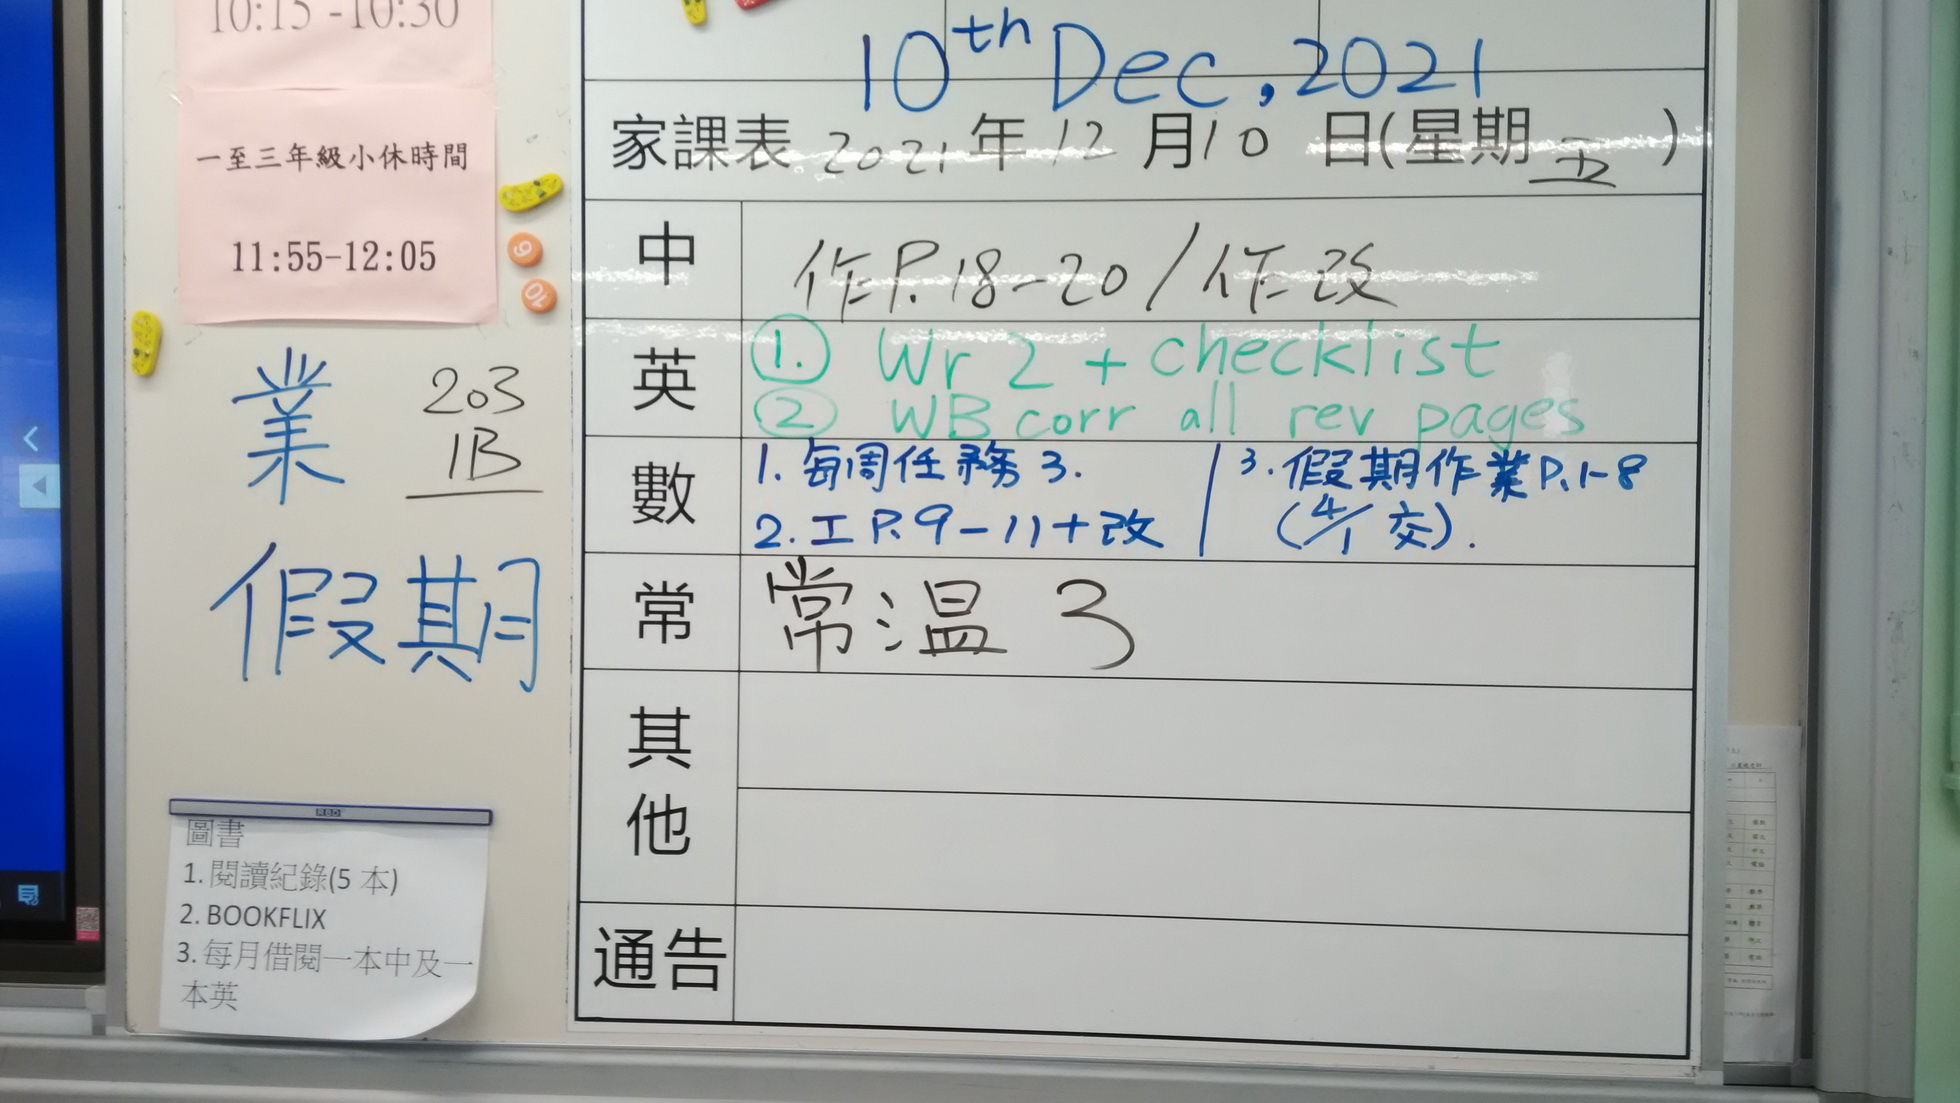 10:15-10:30
一至三年級小休時間
11:55-12:05
業 203
1B
假期
圖書
1. 閱讀紀錄(5 本)
2. BOOKFLIX
3. 每月借閱一本中及一
本英
10th Dec, 2021
家課表 2021 年 12 月 10 日(星期 五 )
中 作P.18-20/作改
英 ①. Wr 2 + checklist
② WB corr all rev pages
數 1. 每周任務 3.
2. 工 P.9-11+改
3. 假期作業P.1-8
(4/1 交).
常 常温 3
其他
通告